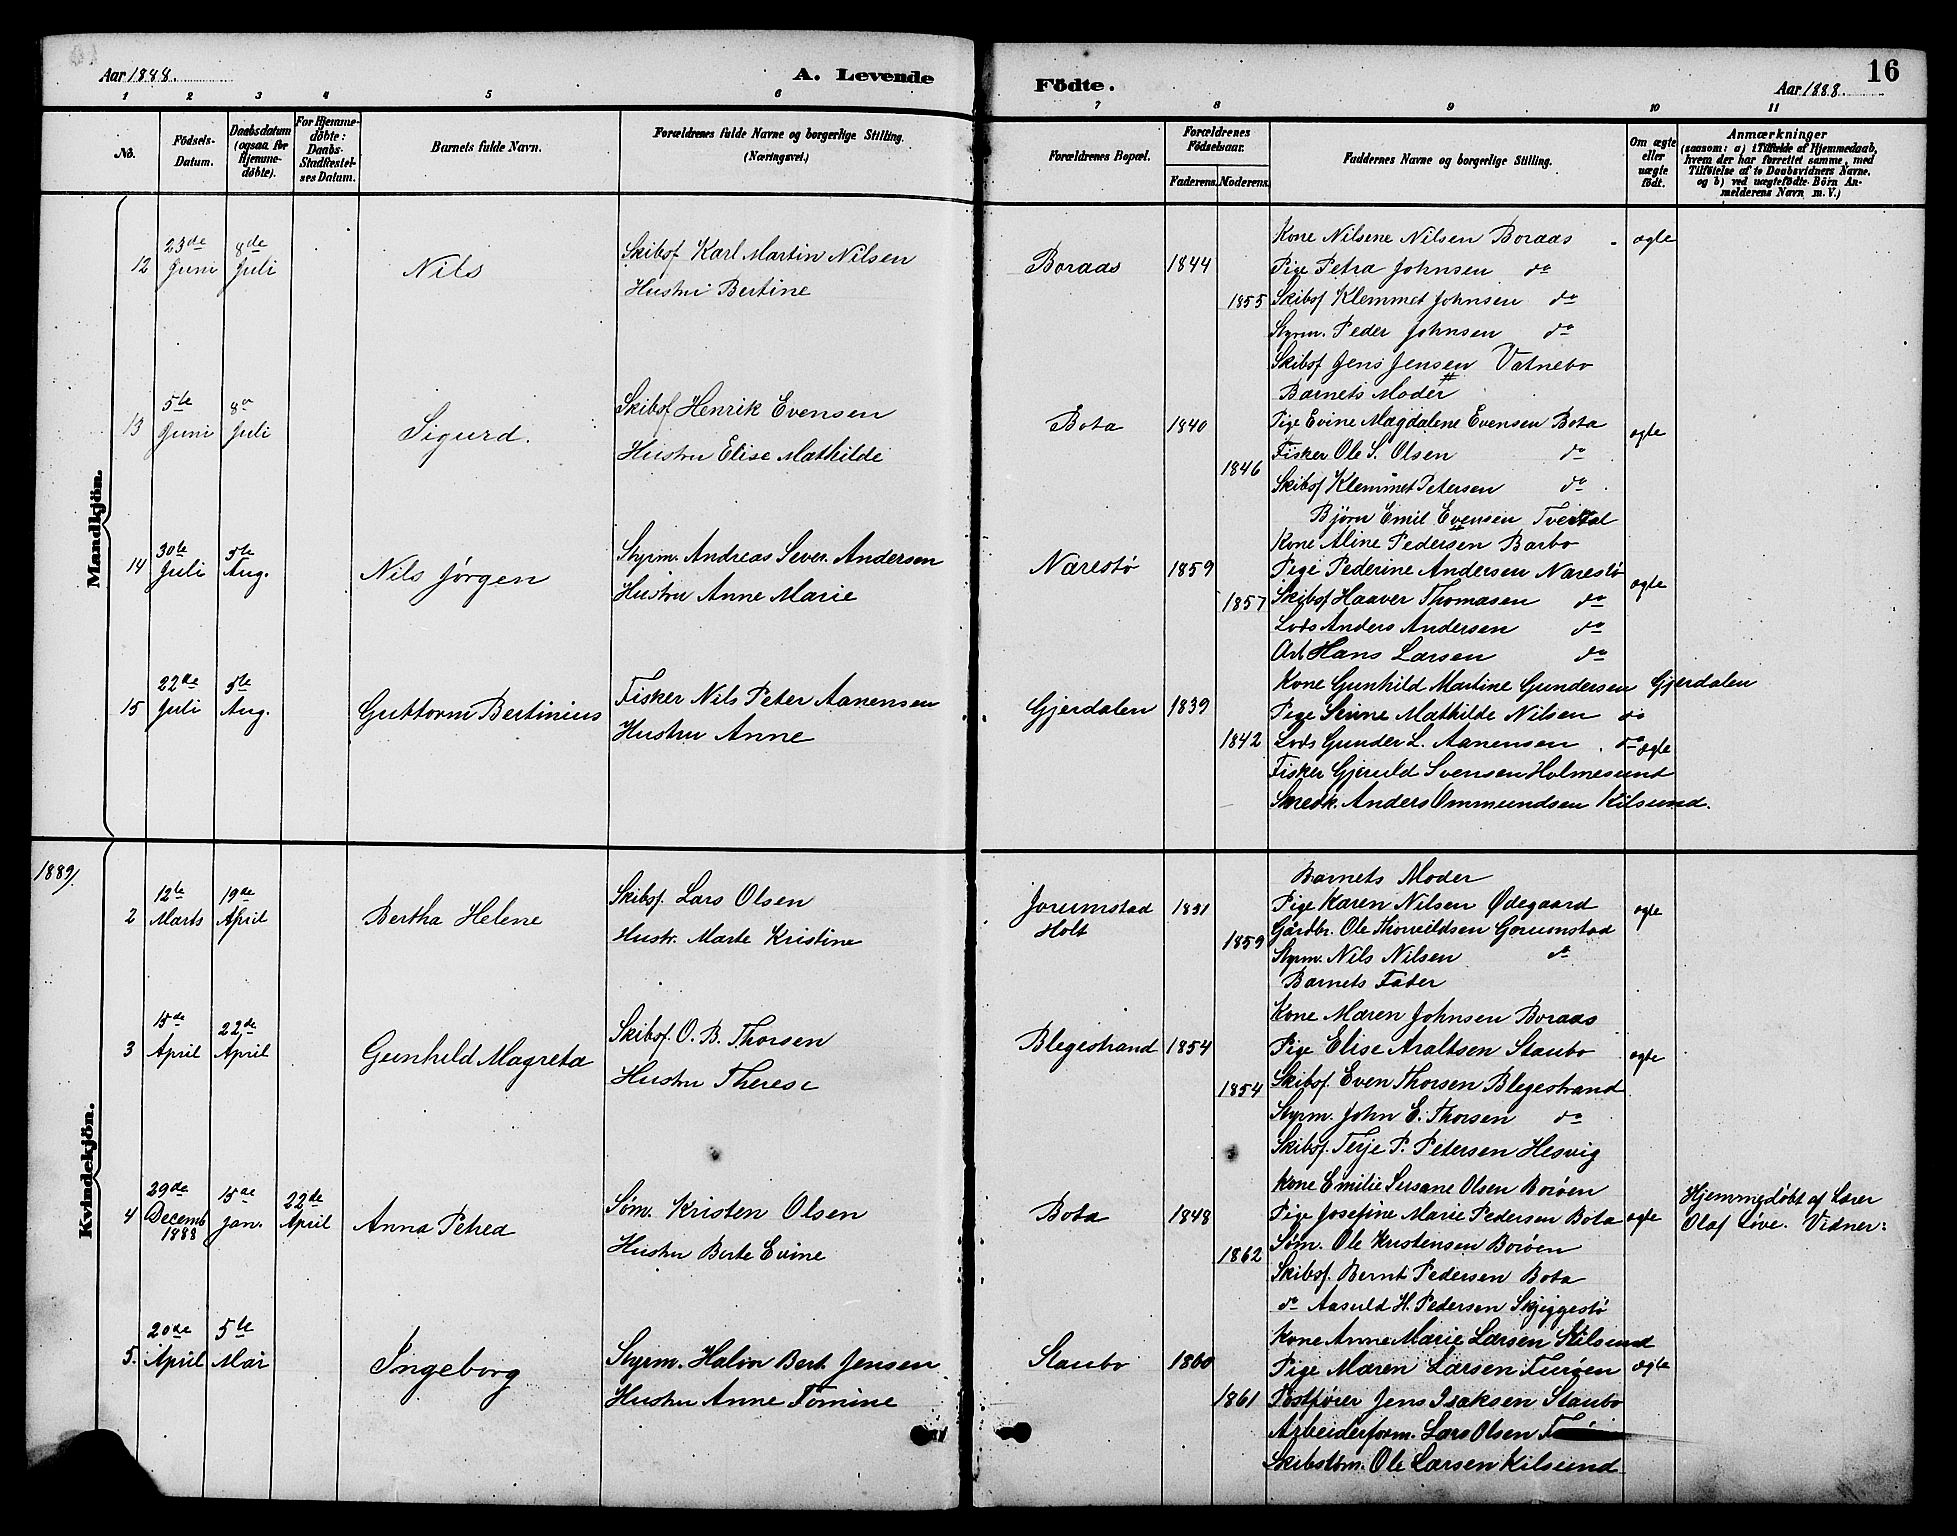 Aar 1888.
A. Levende
Födte.
Aar 1888.
16
1 2 3 4 5 6 7 8 9 10 11
No.
Födsels-Datum.
Daabsdatum (ogsaa for Hjemme-døbte).
For Hjemme-døbte: Daabs-Stadfæstel-ses Datum.
Barnets fulde Navn.
Forældrenes fulde Navne og borgerlige Stilling.
(Næringsvei.)
Forældrenes Bopæl.
Forældrenes Födselsaar.
Faderens. Moderens.
Faddernes Navne og borgerlige Stilling.
Om ægte eller uægte født.
Anmærkninger
(saasom: a) i Tilfælde af Hjemmedaab,
hvem der har forrettet samme, med
Tilföielse af to Daabsvidners Navne,
og b) ved uægtefødte Börn An-
melderens Navn m. V.)
Mandkjön.
12
23de Juni
8de Juli
Nils
Skibsf. Karl Martin Nilsen
Hustru Bertine
Boraas
1844
1855
Kone Nilsene Nilsen Boraas
Pige Petra Johnsen do
Skibsf Klemmet Johnsen do
Styrm. Peder Johnsen do
Skibsf Jens Jensen Vatnebo
ægte
13
5te Juni
8de Juli
Sigurd.
Skibsf. Henrik Evensen
Hustru Elise Mathilde
Bota
1840
1846
Barnets Moder
Pige Evine Magdalene Evensen Bota
Fisker Ole S. Olsen do
Skibsf Klemmet Petersen do
Bjørn Emil Evensen
ægte
14
30te Juli
5te Aug.
Nils Jørgen
Styrm. Andreas Sever. Andersen
Hustru Anne Marie
Narestø
1859
1857
Kone Aline Pedersen Barbo
Pige Pederine Andersen Narestø
Skibsf Haaver Thomasen do
Lods Anders Andersen do
Arb Hans Larsen do
ægte
15
22de Juli
5te Aug.
Guttorm Bertinius
Fisker Nils Peter Aanensen
Hustru Anne
Gjerdalen
1839
1842
Kone Gunhild Martine Gundersen Gjerdalen
Pige Mathilde Nilsen do
Lods Gunder L. Aanensen do
Fisker Gjeruld Svensen Holmesund
Anders Ommundsen Kilsund.
ægte
1889
Kvindekjön.
2
12te Marts
19de April
Bertha Helene
Skibsf. Lars Olsen
Hustr. Marte Kristine
Jorumstad
Holt
1851
1859
Barnets Moder
Pige Karen Nilsen Ødegaard
Gårdbr. Ole Thorvildsen Gorumstad
Styrm. Nils Nilsen do
Barnets Fader
ægte
3
15de April
22de April
Gunhild Magreta
Skibsf. O. B. Thorsen
Hustru Therese
Blegestrand
1854
1854
Kone Maren Johnsen Boraas
Pige Elise Araltsen Staubo
Skibsf. Even Thorsen Blegestrand
Styrm. John E. Thorsen do
Skibsf. Terje P. Petersen Hesvig
ægte
4
29de Decemb 1888
15de Jan.
22de April
Anna Petrea
Søm. Kristen Olsen
Hustru Berte Evine
Bota
1848
1862
Kone Emilie Susane Olsen Borøen
Pige Josefine Marie Pedersen Bota
Søm. Ole Kristensen Borøen
Skibsf. Bernt Pedersen Bota
do Aasuld H. Pedersen Skjiggestø
ægte
Hjemmedøbt af Lærer
Olaf Løve. Vidner:
5.
20de April
5te Mai
Ingeborg
Styrm. Halvor Bert Jensen
Hustru Anne Tomine
Staubo
1860
1861
Kone Anne Marie Larsen Kilsund
Pige Maren Larsen Furøen
Postfører Jens Isaksen Staubo
Arbeiderform. Lars Olsen
Skibstøm. Ole Larsen Kilsund
ægte